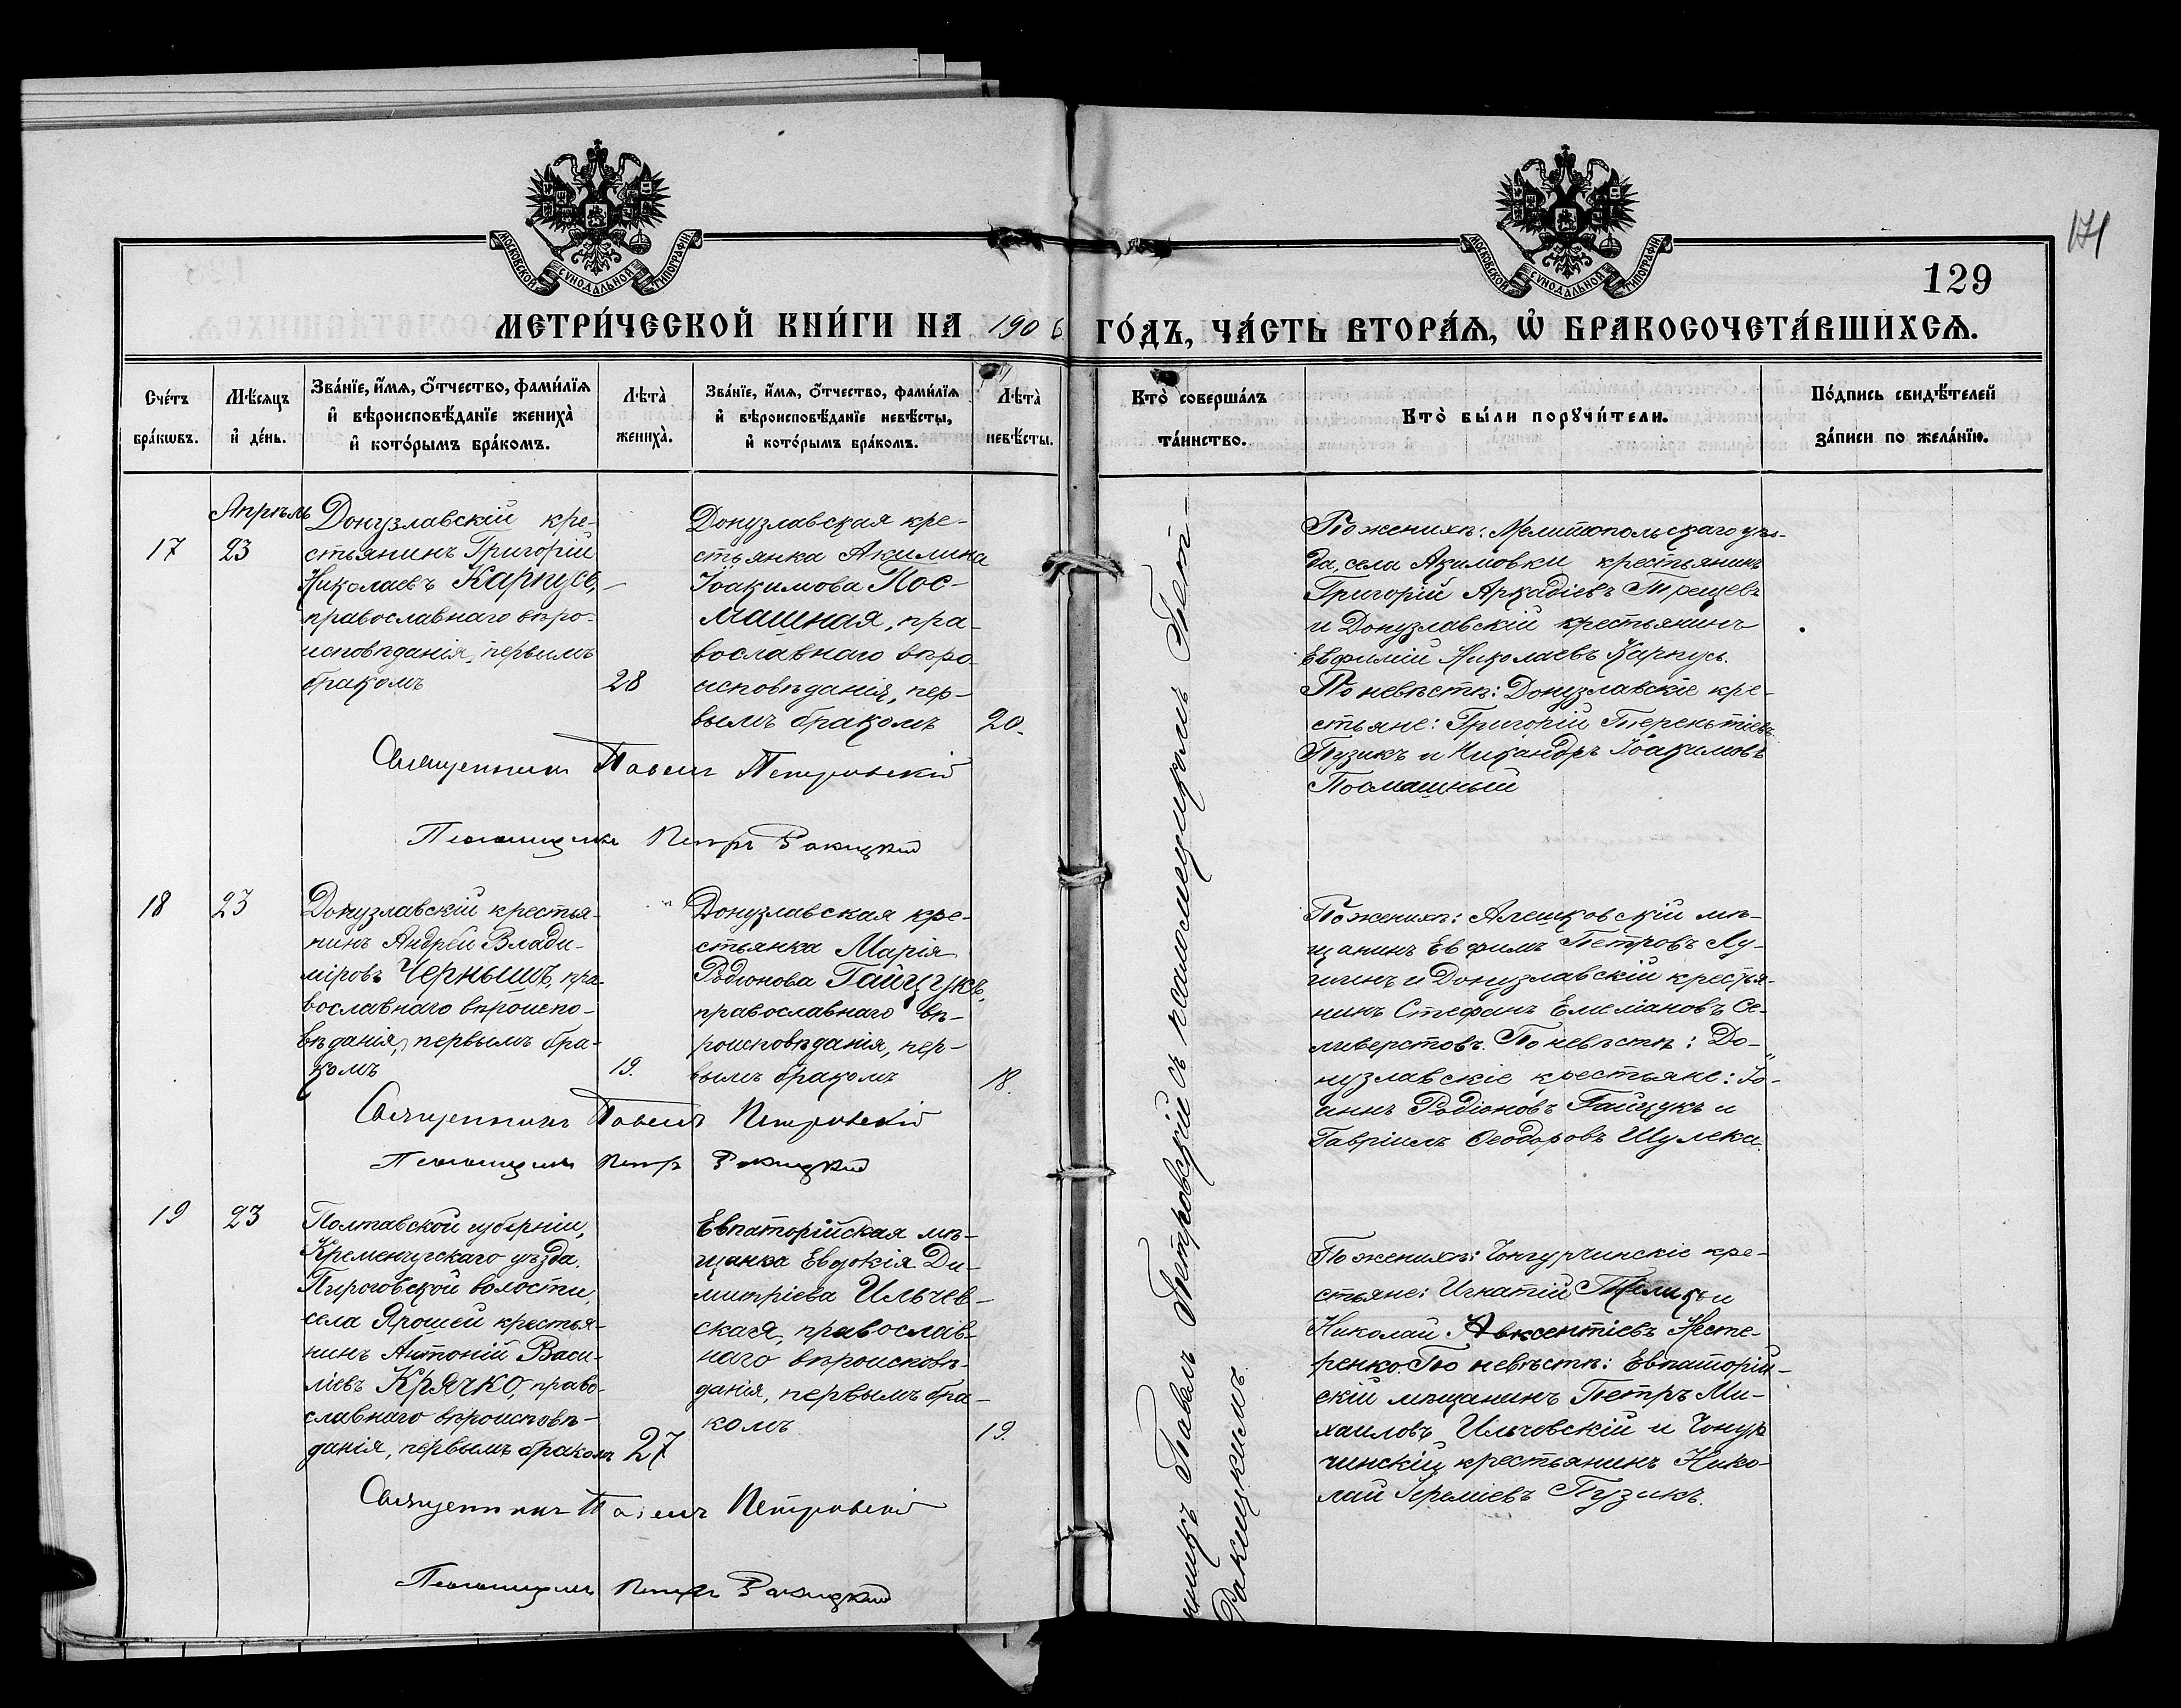 МОСКОВСКОЙ СУНОДАЛЬНОЙ ТИПОГРАФІИ
МОСКОВСКОЙ СУНОДАЛЬНОЙ ТИПОГРАФІИ
171
129
МЕТРИ́ЧЕСКОЙ КНИ́ГИ НА 1906 ГО́ДЪ, ЧА́СТЬ ВТОРА́Ѧ, Ѡ҆ БРАКОСОЧЕТА́ВШИХСѦ.
Сче́тъ бра́кѡвъ.
Мѣ́сяцъ и҆ де́нь.
Зва́нїе, и҆́мѧ, ѻ҆́тчество, фами́лїѧ
и҆ вѣроисповѣ́данїе жениха̀
и҆ кото́рымъ бра́комъ.
Лѣта̀ жениха̀.
Зва́нїе, и҆́мѧ, ѻ҆́тчество, фами́лїѧ
и҆ вѣроисповѣ́данїе невѣ́сты,
и҆ кото́рымъ бра́комъ.
Лѣта̀ невѣ́сты.
Кто̀ соверша́лъ
та́инство.
Кто̀ бы́ли порꙋчи́тели.
По́дпись свидѣ́телей
за́писи по жела́нїю.
17
Апрѣль
23
Донузлавскій кре-
стьянинъ Григорій
Николаевъ Карпусь,
православнаго вѣро-
исповѣданія, первымъ
бракомъ
28
Донузлавская кре-
стьянка Акилина
Іоакимова Пос-
машная, пра-
вославнаго вѣро-
исповѣданія, пер-
вымъ бракомъ
20.
Священникъ Павелъ Петровскій
Псаломщикъ Петръ Ракицкій
По женихѣ: Мелитопольскаго уѣз-
да, села Акимовки крестьянинъ
Григорій Аркадіевъ Трещевъ
и Донузлавскій крестьянинъ
Евфимій Николаевъ Карпусь.
По невѣстѣ: Донузлавскіе кре-
стьяне: Григорій Терентіевъ
Пузикъ и Никандръ Іоакимовъ
Посмашный
18
23
Донузлавскій крестья-
нинъ Андрей Влади-
міровъ Чернышъ, пра-
вославнаго вѣроиспо-
вѣданія, первымъ бра-
комъ
19.
Донузлавская кре-
стьянка Марія
Родіонова Гайцукъ,
православнаго вѣ-
роисповѣданія, пер-
вымъ бракомъ
18.
Священникъ Павелъ Петровскій
Псаломщикъ Петръ Ракицкій
По женихѣ: Алешковскій мѣ-
щанинъ Евфимъ Петровъ
и Донузлавскій крестья-
нинъ Стефанъ Емеліановъ Се-
ливерстовъ. По невѣстѣ: До-
нузлавскіе крестьяне: Іо-
аннъ Родіоновъ Гайцукъ и
Гавріилъ Ѳеодоровъ Шулека.
19
23
Полтавской губерніи,
Кременчугскаго уѣзда,
Пироговской волости,
села Ярошей крестья-
нинъ Антоній Васи-
ліевъ Крячко, право-
славнаго вѣроисповѣ-
данія, первымъ бракомъ
27
Евпаторійская мѣ-
щанка Евдокія Ди-
митріева Ильчев-
ская, православ-
наго вѣроисповѣ-
данія, первымъ бра-
комъ
19.
Священникъ Павелъ Петровскій
Псаломщикъ Петръ Ракицкій
По женихѣ: Чонгурчинскіе кре-
стьяне: Игнатій и
Николай Авксентіевъ Несте-
ренко. По невѣстѣ: Евпаторій-
скій мѣщанинъ Петръ Ми-
хаиловъ Ильчовскій и
чинскій крестьянинъ Нико-
лай Іереміевъ Пузикъ.
нникъ Павелъ Петровскій съ псаломщикомъ Пет-
Ракицкимъ